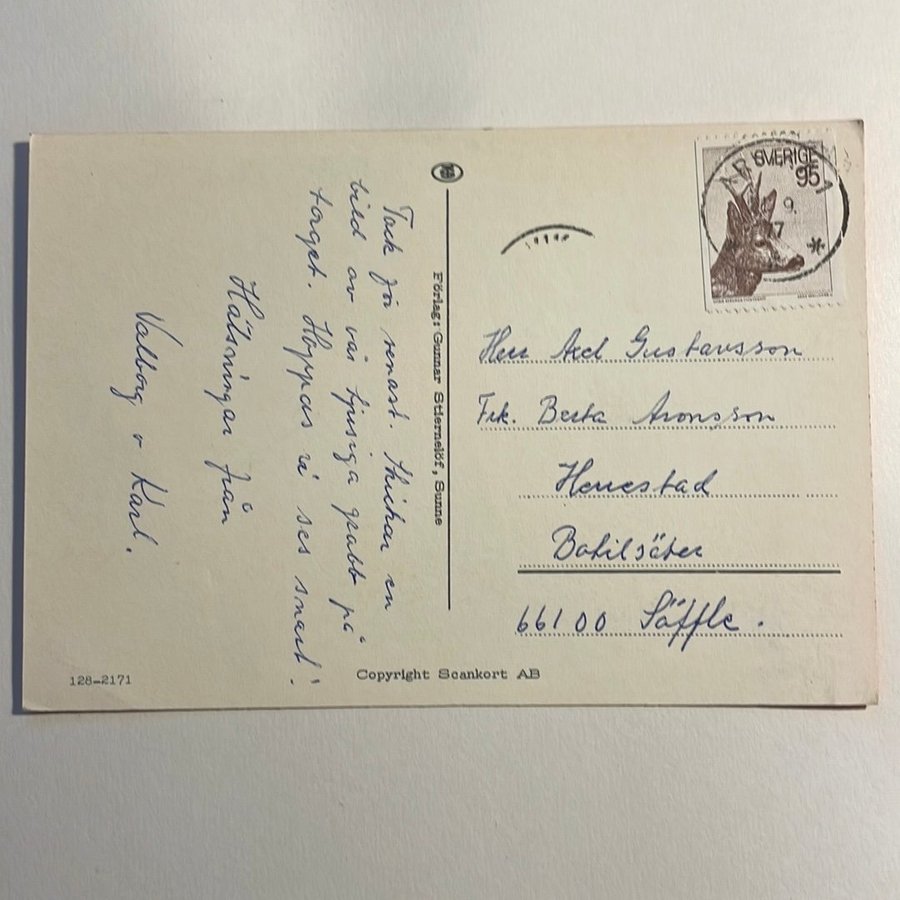 Tack för senast. Skickar en
bild av vår tjusiga gubbe på
torget. Hoppas vi ses snart!
Hälsningar från
Valborg o Karl.
Förlag: Gunnar Stiernelöf, Sunne
SVERIGE
95
9.
77
Herr Axel Gustavsson
Frk. Berta Aronsson
Herrestad
Botilsäter
661 00 Säffle.
128-2171
Copyright Scankort AB